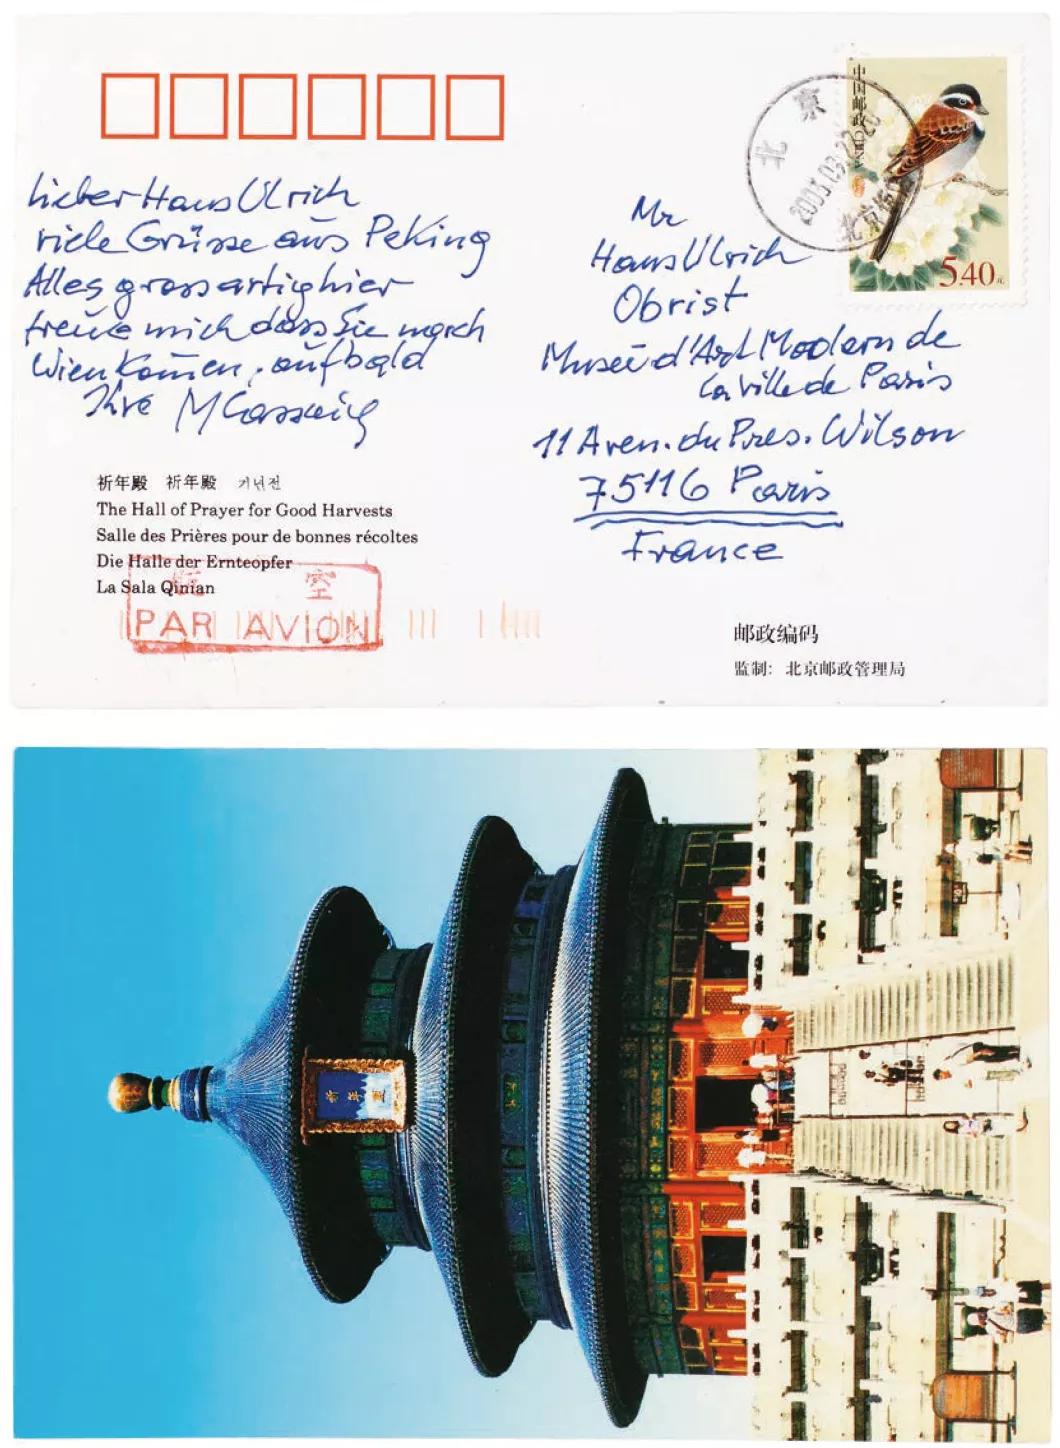 Lieber Hans Ulrich
viele Grüsse aus Peking
Alles grossartig hier
freue mich dass Sie nach
Wien Komen, auf bald
Ihre M Lassnig
祈年殿 祈年殿 기년전
The Hall of Prayer for Good Harvests
Salle des Prières pour de bonnes récoltes
Die Halle der Ernteopfer
La Sala Qinian
空
PAR AVION
中国邮政 CHINA
5.40元
北京
2003.03.22.20
北京
Mr
Hans Ulrich
Obrist
Museé d'Art Modern de
la ville de Paris
11 Aven. du Pres. Wilson
75116 Paris
France
邮政编码
监制：北京邮政管理局
祈年殿